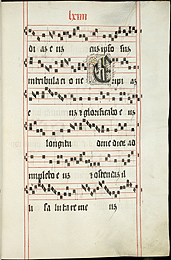 lxiiii
di aʒ e uʒ cuʒ ipso suʒ
in tribulati o ne E ripi aʒ
e uʒ ⁊ glorificabo e uʒ
longitu dine dieʒ ad
implebo e uʒ ⁊ ostendaʒ il
li sa lu ta re me uʒ